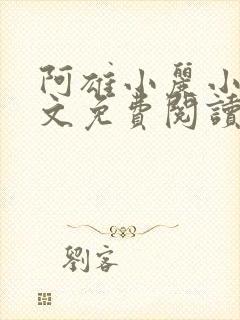 阿雄小麗小
文免費閱讀
劉客